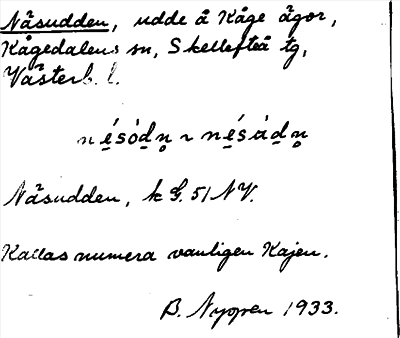 Näsudden, udde å Kåge ägor,
Kågedalens sn, Skellefteå tg,
Västerb. l.
né̱sòd̲n̥ ~ né̱sàd̲n̥
Näsudden, k G. 51 NV.
Kallas numera vanligen Kajen.
B. 1933.